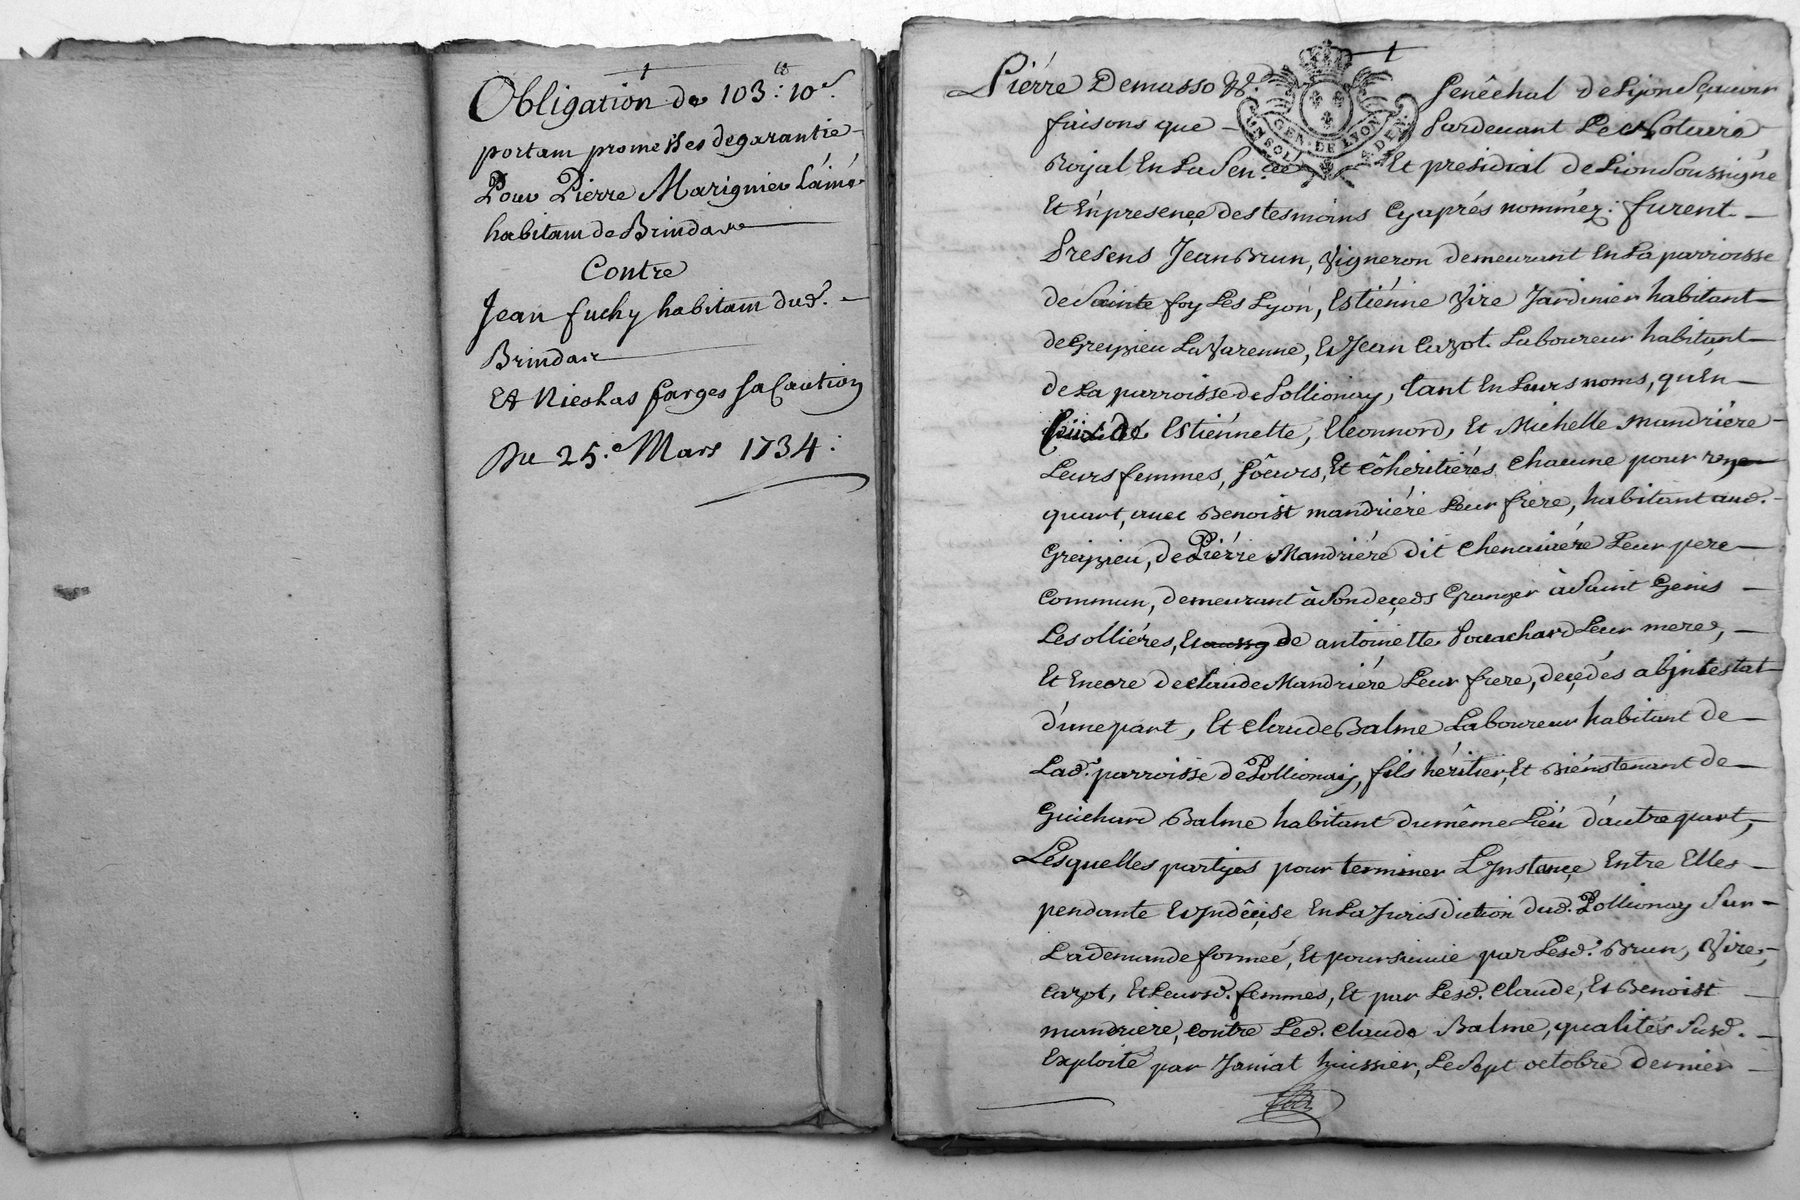 Obligation de 103.lt 10s.
portam promesses degarantie
Pour Pierre Marignier Láiné
habitam de Brindas
Contre
Jean fuchy habitam dud.
Brindas
Et Nicolas farges sa Caution
Du 25.e Mars 1734.
Piérre Demasso &c. Senéchal de Lyon Sçavoir
faisons que Pardevant Le Notaire
Royal En La Sen.cée Et presidial de Lion Soussigné
Et En presençe des tesmoins Cyaprés nomméz: furent
Presens Jean Brun, Vigneron demeurant En La parroisse
de Sainte foy Les Lyon, Estiénne Vire Jardinier habitant
de Greizieu La Varenne, Et Jean Cazot Laboureur habitant
de La parroisse de Pollionay, tant En Leurs noms, qu'En
Ceux de Estiénnette, Eleonnord, Et Michelle Mandriére
Leurs femmes, Sœurs, Et Côheritiéres chacune pour un
quart, avec Benoist Mandriére Leur frére, habitant aud.
Greizieu, de Piérre Mandriére dit Chenaviére Leur pere
Commun, demeurant à Son deçeds Granger à Saint Genis
Les olliéres, Et aussy de antoinette Pouachard Leur mere,
Et Encore de Claude Mandriére Leur frere, deçedés abjntestat
d'une part, Et Claude Balme Laboureur habitant de
Lad. parroisse de Pollionay, fils héritier, Et Biénstenant de
Guichard Balme habitant du même Liéu d'autre part,
Lesquelles partyes pour terminer L'Jnstançe Entre Elles
pendante Et Jndéçise En La Jurisdiction dud. Pollionay Sur
La demande formeé, Et poursuivie par Lesd. Brun, Vire,
Cazot, Et Leursd. femmes, Et par Lesd. Claude, Et Benoist
mandriere, contre Led. Claude Balme, qualités Susd.
Exploité par Janiat huissier, Le Sept octobre dernier
GEN. DE LYON
UN SOL